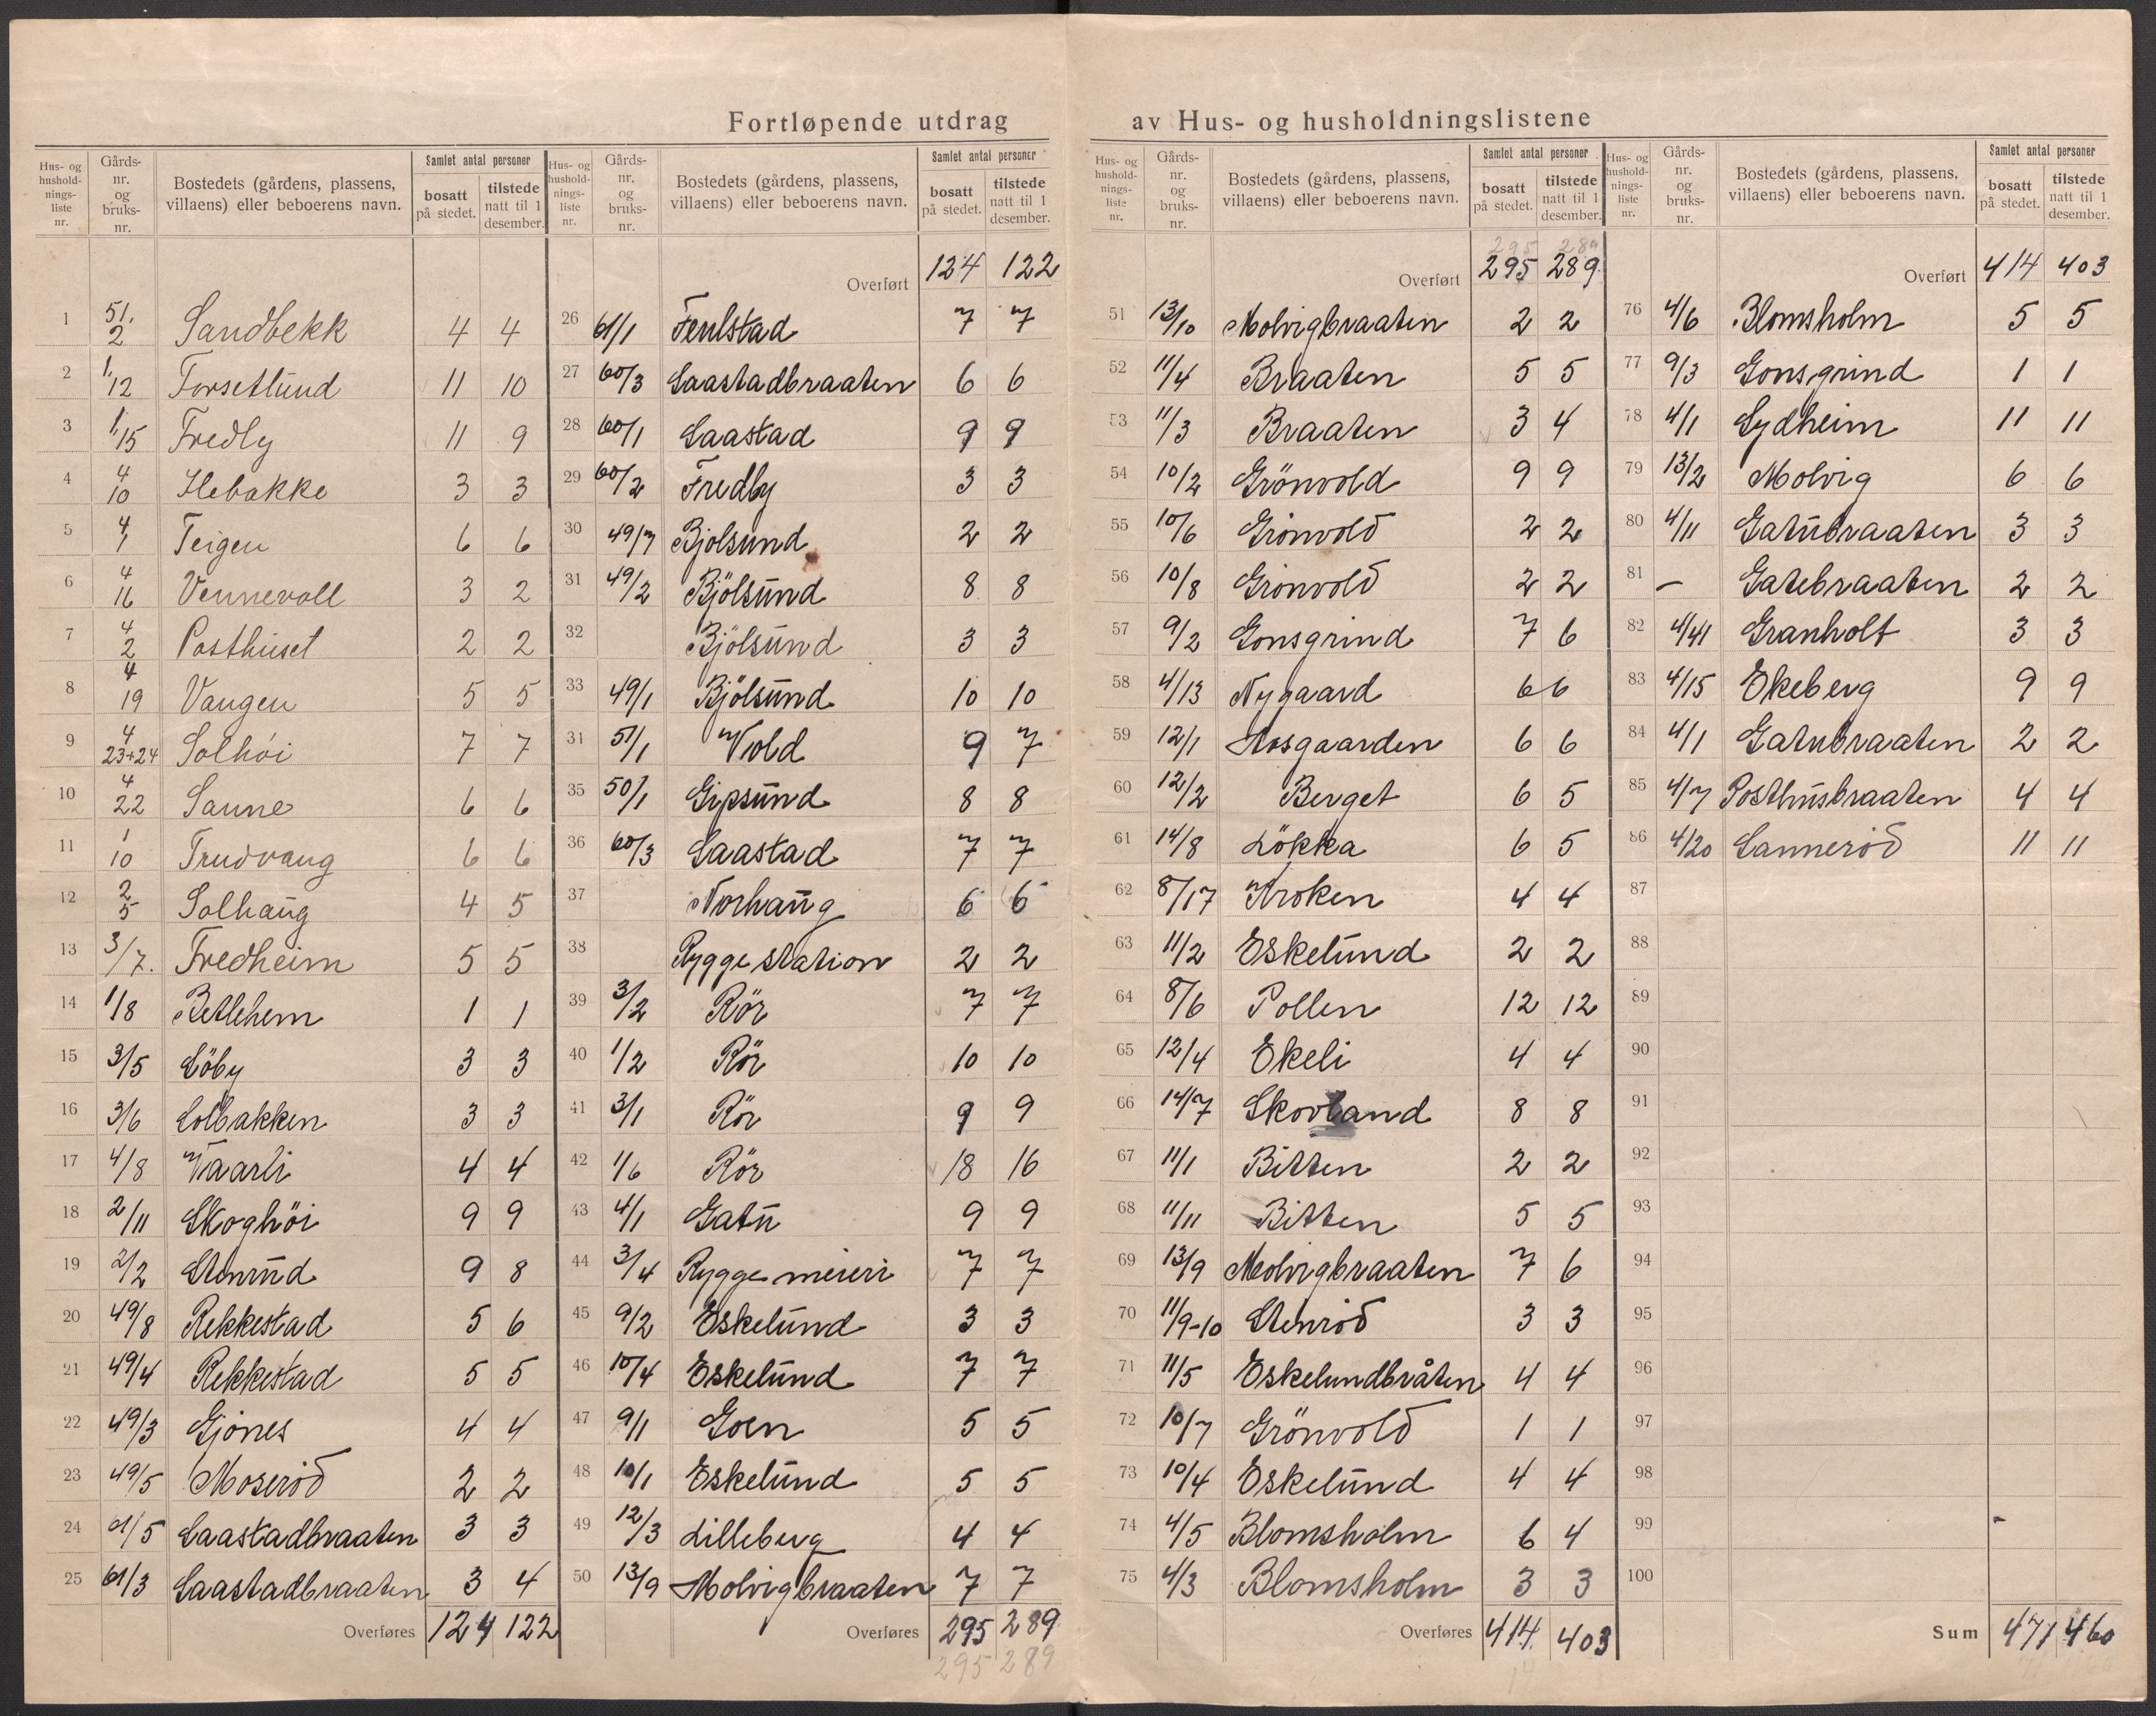 Fortløpende utdrag av Hus- og husholdningslistene
Hus- og husholdnings-liste nr. Gårds-nr. og bruks-nr. Bostedets (gårdens, plassens, villaens) eller beboerens navn. Samlet antal personer bosatt på stedet. tilstede natt til 1 desember.
1 51. 2 Sandbekk 4 4
2 1. 12 Torsetlund 11 10
3 1. 15 Fredly 11 9
4 4 10 Ilebakke 3 3
5 4 1 Teigen 6 6
6 4 16 Vennevoll 3 2
7 4 2 Posthuset 2 2
8 4 19 Vangen 5 5
9 4 23+24 Solhöi 7 7
10 4 22 Sanne 6 6
11 1 10 Trudvang 6 6
12 2 5 Solhaug 4 5
13 3/7. Fredheim 5 5
14 1/8 Betlehem 1 1
15 3/5 Löby 3 3
16 3/6 Solbakken 3 3
17 4/8 Vaarli 4 4
18 2/11 Skoghöi 9 9
19 2/2 Stenrud 9 8
20 49/8 Rekkestad 5 6
21 49/4 Rekkestad 5 5
22 49/3 Gjönes 4 4
23 49/5 Moseröd 2 2
24 61/5 Saastadbraaten 3 3
25 61/3 Saastadbraaten 3 4
Overføres 124 122
Hus- og husholdnings-liste nr. Gårds-nr. og bruks-nr. Bostedets (gårdens, plassens, villaens) eller beboerens navn. Samlet antal personer bosatt på stedet. tilstede natt til 1 desember.
Overført 124 122
26 61/1 7 7
27 60/3 Saastadbraaten 6 6
28 60/1 Saastad 9 9
29 60/2 Fredby 3 3
30 49/7 Bjölsund 2 2
31 49/2 Bjölsund 8 8
32 Bjölsund 3 3
33 49/1 Bjölsund 10 10
34 51/1 Vold 9 7
35 50/1 Gipsund 8 8
36 60/3 Saastad 7 7
37 Norhaug 6 6
38 Rygge station 2 2
39 3/2 Rör 7 7
40 1/2 Rör 10 10
41 3/1 Rör 9 9
42 1/6 Rör 18 16
43 4/1 Gatu 9 9
44 3/4 Rygge meieri 7 7
45 9/2 Eskelund 3 3
46 10/4 Eskelund 7 7
47 9/1 Goen 5 5
48 10/1 Eskelund 5 5
49 12/3 Lilleberg 4 4
50 13/9 Molvigbraaten 7 7
Overføres 295 289
295 289
Hus- og husholdnings-liste nr. Gårds-nr. og bruks-nr. Bostedets (gårdens, plassens, villaens) eller beboerens navn. Samlet antal personer bosatt på stedet. tilstede natt til 1 desember.
295 289
Overført 295 289
51 13/10 Molvigbraaten 2 2
52 11/4 Braaten 5 5
53 11/3 Braaten 3 4
54 10/2 Grönvold 9 9
55 10/6 Grönvold 2 2
56 10/8 Grönvold 2 2
57 9/2 Gonsgrind 7 6
58 4/13 Nygaard 6 6
59 12/1 Aosgaarden 6 6
60 12/2 Berget 6 5
61 14/8 Lökka 6 5
62 8/17 Kroken 4 4
63 11/2 Eskelund 2 2
64 8/6 Pollen 12 12
65 12/4 Ekeli 4 4
66 14/7 Skovland 8 8
67 11/1 Bitten 2 2
68 11/11 Bitten 5 5
69 13/9 Molvigbraaten 7 6
70 11/9-10 Stenröd 3 3
71 11/5 Eskelundbråten 4 4
72 10/7 Grönvold 1 1
73 10/4 Eskelund 4 4
74 4/5 Blomsholm 6 4
75 4/3 Blomsholm 3 3
Overføres 414 403
Hus- og husholdnings-liste nr. Gårds-nr. og bruks-nr. Bostedets (gårdens, plassens, villaens) eller beboerens navn. Samlet antal personer bosatt på stedet. tilstede natt til 1 desember.
Overført 414 403
76 4/6 Blomsholm 5 5
77 9/3 Gonsgrind 1 1
78 4/1 Sydheim 11 11
79 13/2 Molvig 6 6
80 4/11 Gatubraaten 3 3
81 – Gatebraaten 2 2
82 4/41 Granholt 3 3
83 4/15 Ekeberg 9 9
84 4/1 Gatubraaten 2 2
85 4/7 Posthusbraaten 4 4
86 4/20 Sanneröd 11 11
87
88
89
90
91
92
93
94
95
96
97
98
99
100
Sum 471 460